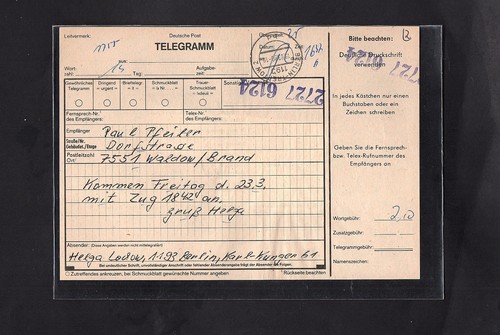 Leitvermerk:
Deutsche Post
Datum
Zeit
TELEGRAMM
Wort-
zahl
15
Tag:
Aufgabe-
zeit:
Gewöhnliches
Telegramm
Dringend
= urgent =
Brief
Schmuckblatt
Trauer
Schmuckblatt
27727 6124
Fernsprech-Nr.
des Empfängers:
Telex-Nr.
des Empfängers:
Empfänger
Paul Pfeiler
Straße/Nr.
Dorfstrase
Postleitzahl
Ort
7551 Waldow/Brand
Kommen Freitag d. 23.3.
mit Zug 1842 an.
gruß Helga
Absender: (Diese Angaben werden nicht mittelegrafiert)
Helga Ladow, 1193 Berlin, Karl-Kunger 61
Zutreffendes ankreuzen, bei Schmuckblatt gewünschte Nummer angeben
Rückseite beachten
Bitte beachten:
2
Deutliche Druckschrift
verwenden
27727
6124
In jedes Kästchen nur einen
Buchstaben oder ein
Zeichen schreiben
Geben Sie die Fernsprech-
bzw. Telex-Rufnummer des
Empfängers an
Wortgebühr:
Zusatzgebühr:
Telegrammgebühr:
Namenszeichen: